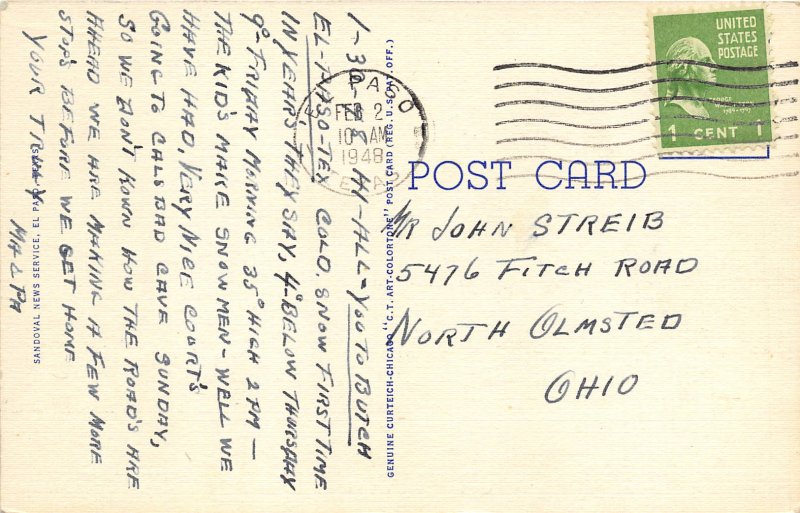 1-30-48 HI-ALL-YOU TO BUTCH
EL PASO-TEX COLD. SNOW FIRST TIME
IN YEARS THEY SAY, 4° BELOW THURSDAY
9°-FRIDAY MORNING 35° HIGH 2 PM-
THE KID'S MAKE SNOW MEN-WELL WE
HAVE HAD, VERY NICE COURT'S
GOING TO CALSBAD CAVE SUNDAY,
SO WE DON'T KOWN HOW THE ROAD'S ARE
AHEAD WE ARE MAKING A FEW MORE
STOP'S BEFORE WE GET HOME
YOUR TRULY
MA & PA
SANDOVAL NEWS SERVICE, EL PASO, TEXAS
GENUINE CURTEICH-CHICAGO "C.T. ART-COLORTONE" POST CARD (REG. U.S. PAT. OFF.)
EL PASO
FEB 2
10 AM
1948
TEXAS
UNITED
STATES
POSTAGE
1 CENT 1
POST CARD
MR JOHN STREIB
5476 FITCH ROAD
NORTH OLMSTED
OHIO